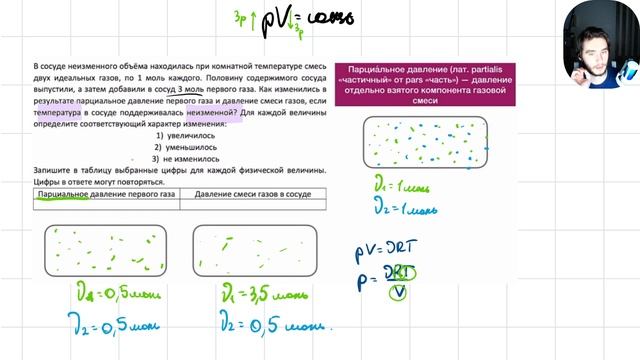 3р↑ pV↓ = const
3р
В сосуде неизменного объёма находилась при комнатной температуре смесь
двух идеальных газов, по 1 моль каждого. Половину содержимого сосуда
выпустили, а затем добавили в сосуд 3 моль первого газа. Как изменились в
результате парциальное давление первого газа и давление смеси газов, если
температура в сосуде поддерживалась неизменной? Для каждой величины
определите соответствующий характер изменения:
1) увеличилось
2) уменьшилось
3) не изменилось
Запишите в таблицу выбранные цифры для каждой физической величины.
Цифры в ответе могут повторяться.
Парциальное давление первого газа
Давление смеси газов в сосуде
Парциа́льное давление (лат. partialis
«частичный» от pars «часть») — давление
отдельно взятого компонента газовой
смеси
ν₁=1моль
ν₂=1моль
pV=νRT
p=νRT
V
ν₁=0,5моль
ν₂=0,5моль
ν₁=3,5моль
ν₂=0,5моль.